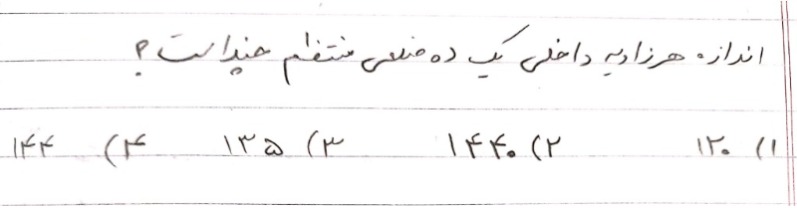 اندازه هر زاویه داخلی یک ده ضلعی منتظم چند است؟
۱) ۱۲۰ ۲) ۱۴۴۰ ۳) ۱۳۵ ۴) ۱۴۴